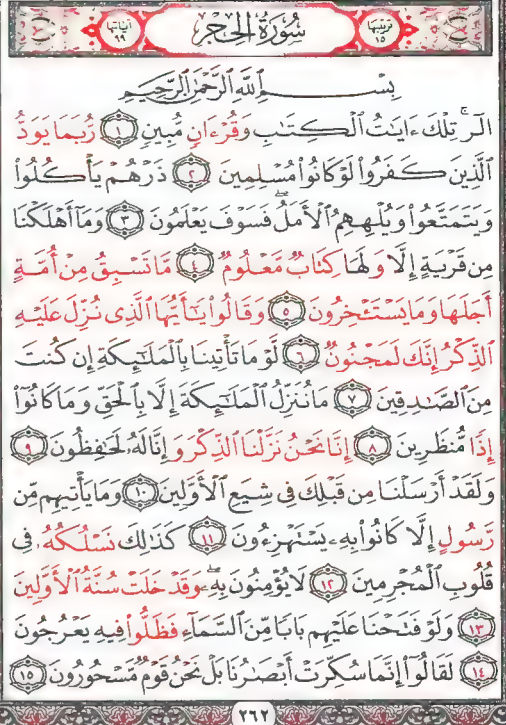 ترتيبها ١٥ سُورَةُ الحِجْرِ آياتها ٩٩
بِسْمِ ٱللَّهِ ٱلرَّحْمَٰنِ ٱلرَّحِيمِ
الٓرۚ تِلْكَ ءَايَٰتُ ٱلْكِتَٰبِ وَقُرْءَانٍ مُّبِينٍ ١ رُّبَمَا يَوَدُّ
ٱلَّذِينَ كَفَرُوا۟ لَوْ كَانُوا۟ مُسْلِمِينَ ٢ ذَرْهُمْ يَأْكُلُوا۟
وَيَتَمَتَّعُوا۟ وَيُلْهِهِمُ ٱلْأَمَلُۖ فَسَوْفَ يَعْلَمُونَ ٣ وَمَآ أَهْلَكْنَا
مِن قَرْيَةٍ إِلَّا وَلَهَا كِتَابٌ مَّعْلُومٌ ٤ مَّا تَسْبِقُ مِنْ أُمَّةٍ
أَجَلَهَا وَمَا يَسْتَـْٔخِرُونَ ٥ وَقَالُوا۟ يَٰٓأَيُّهَا ٱلَّذِى نُزِّلَ عَلَيْهِ
ٱلذِّكْرُ إِنَّكَ لَمَجْنُونٌ ٦ لَّوْ مَا تَأْتِينَا بِٱلْمَلَٰٓئِكَةِ إِن كُنتَ
مِنَ ٱلصَّٰدِقِينَ ٧ مَا نُنَزِّلُ ٱلْمَلَٰٓئِكَةَ إِلَّا بِٱلْحَقِّ وَمَا كَانُوٓا۟
إِذًا مُّنظَرِينَ ٨ إِنَّا نَحْنُ نَزَّلْنَا ٱلذِّكْرَ وَإِنَّا لَهُۥ لَحَٰفِظُونَ ٩
وَلَقَدْ أَرْسَلْنَا مِن قَبْلِكَ فِى شِيَعِ ٱلْأَوَّلِينَ ١٠ وَمَا يَأْتِيهِم مِّن
رَّسُولٍ إِلَّا كَانُوا۟ بِهِۦ يَسْتَهْزِءُونَ ١١ كَذَٰلِكَ نَسْلُكُهُۥ فِى
قُلُوبِ ٱلْمُجْرِمِينَ ١٢ لَا يُؤْمِنُونَ بِهِۦۖ وَقَدْ خَلَتْ سُنَّةُ ٱلْأَوَّلِينَ
١٣ وَلَوْ فَتَحْنَا عَلَيْهِم بَابًا مِّنَ ٱلسَّمَآءِ فَظَلُّوا۟ فِيهِ يَعْرُجُونَ
١٤ لَقَالُوٓا۟ إِنَّمَا سُكِّرَتْ أَبْصَٰرُنَا بَلْ نَحْنُ قَوْمٌ مَّسْحُورُونَ ١٥
٢٦٢